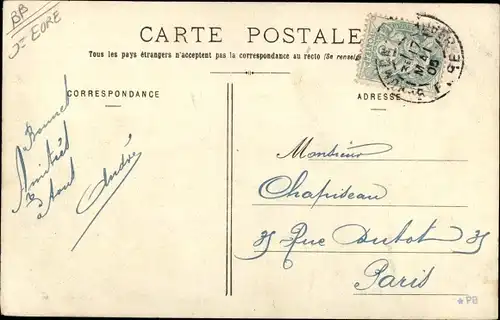 BB
CARTE POSTALE
Tous les pays étrangers n'acceptent pas la correspondance au recto (Se renseign
CORRESPONDANCE
ADRESSE
Bonnes
Amitiés
à tous
André
Monsieur
Chapideau
35 Rue Dutot 35
Paris
* PB